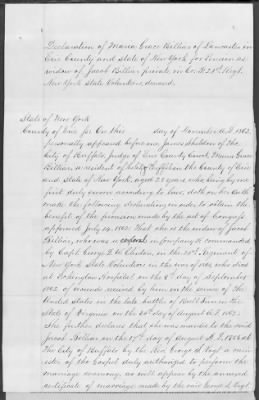 Declaration of Maria Grace Bellias of Lancaster in
Erie County and State of New York for Pension as
widow of Jacob Bellias private in Co. D 21st Regt.
New York State Volunteers, deceased.
State of New York
County of Erie ss: On this day of November A.D. 1862,
personally appeared before me James Sheldon of the
City of Buffalo Judge of Erie County Court, Maria Grace
Bellias a resident of Buffalo in the County of Erie
and State of New York, aged 25 years, who being by me
first duly sworn according to law, doth on her oath
made the following declaration in order to obtain the
benefit of the provision made by the act of Congress
approved July 14, 1862. That she is the widow of Jacob
Bellias, who was a corporal in Company D commanded
by Capt. George in the 21st Regiment of
New York State Volunteers in the war of 1861, who died
at Washington Hospital on the 8th day of September
1862 of wounds received by him in the service of the
United States in the late battle of Bull Run in the
State of Virginia on the 30th day of August A.D. 1862.
She further declares that she was married to the said
Jacob Bellias on the 27th day of August A.D. at
The City of Buffalo by the Rev. George A. Vogt a min
ister of the Gospel duly authorized to perform the
marriage ceremony, as will appear by the annexed
certificate of marriage made by the said George A. Vogt